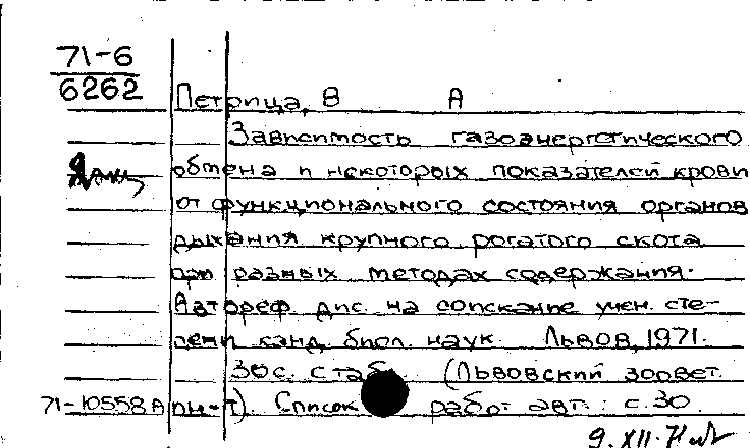 71-6
6262
Петрица, В А
Зависимость газоэнергетического
обмена и некоторых показателей крови
от функционального состояния органов
дыхания крупного рогатого скота
при разных методах содержания.
Автореф. дис. на соискание учен. сте-
пени канд. биол. наук. Львов, 1971.
30 с. с таб. (Львовский зоовет.
71-10558А ин-т). Список работ авт.: с. 30.
9.XII.71